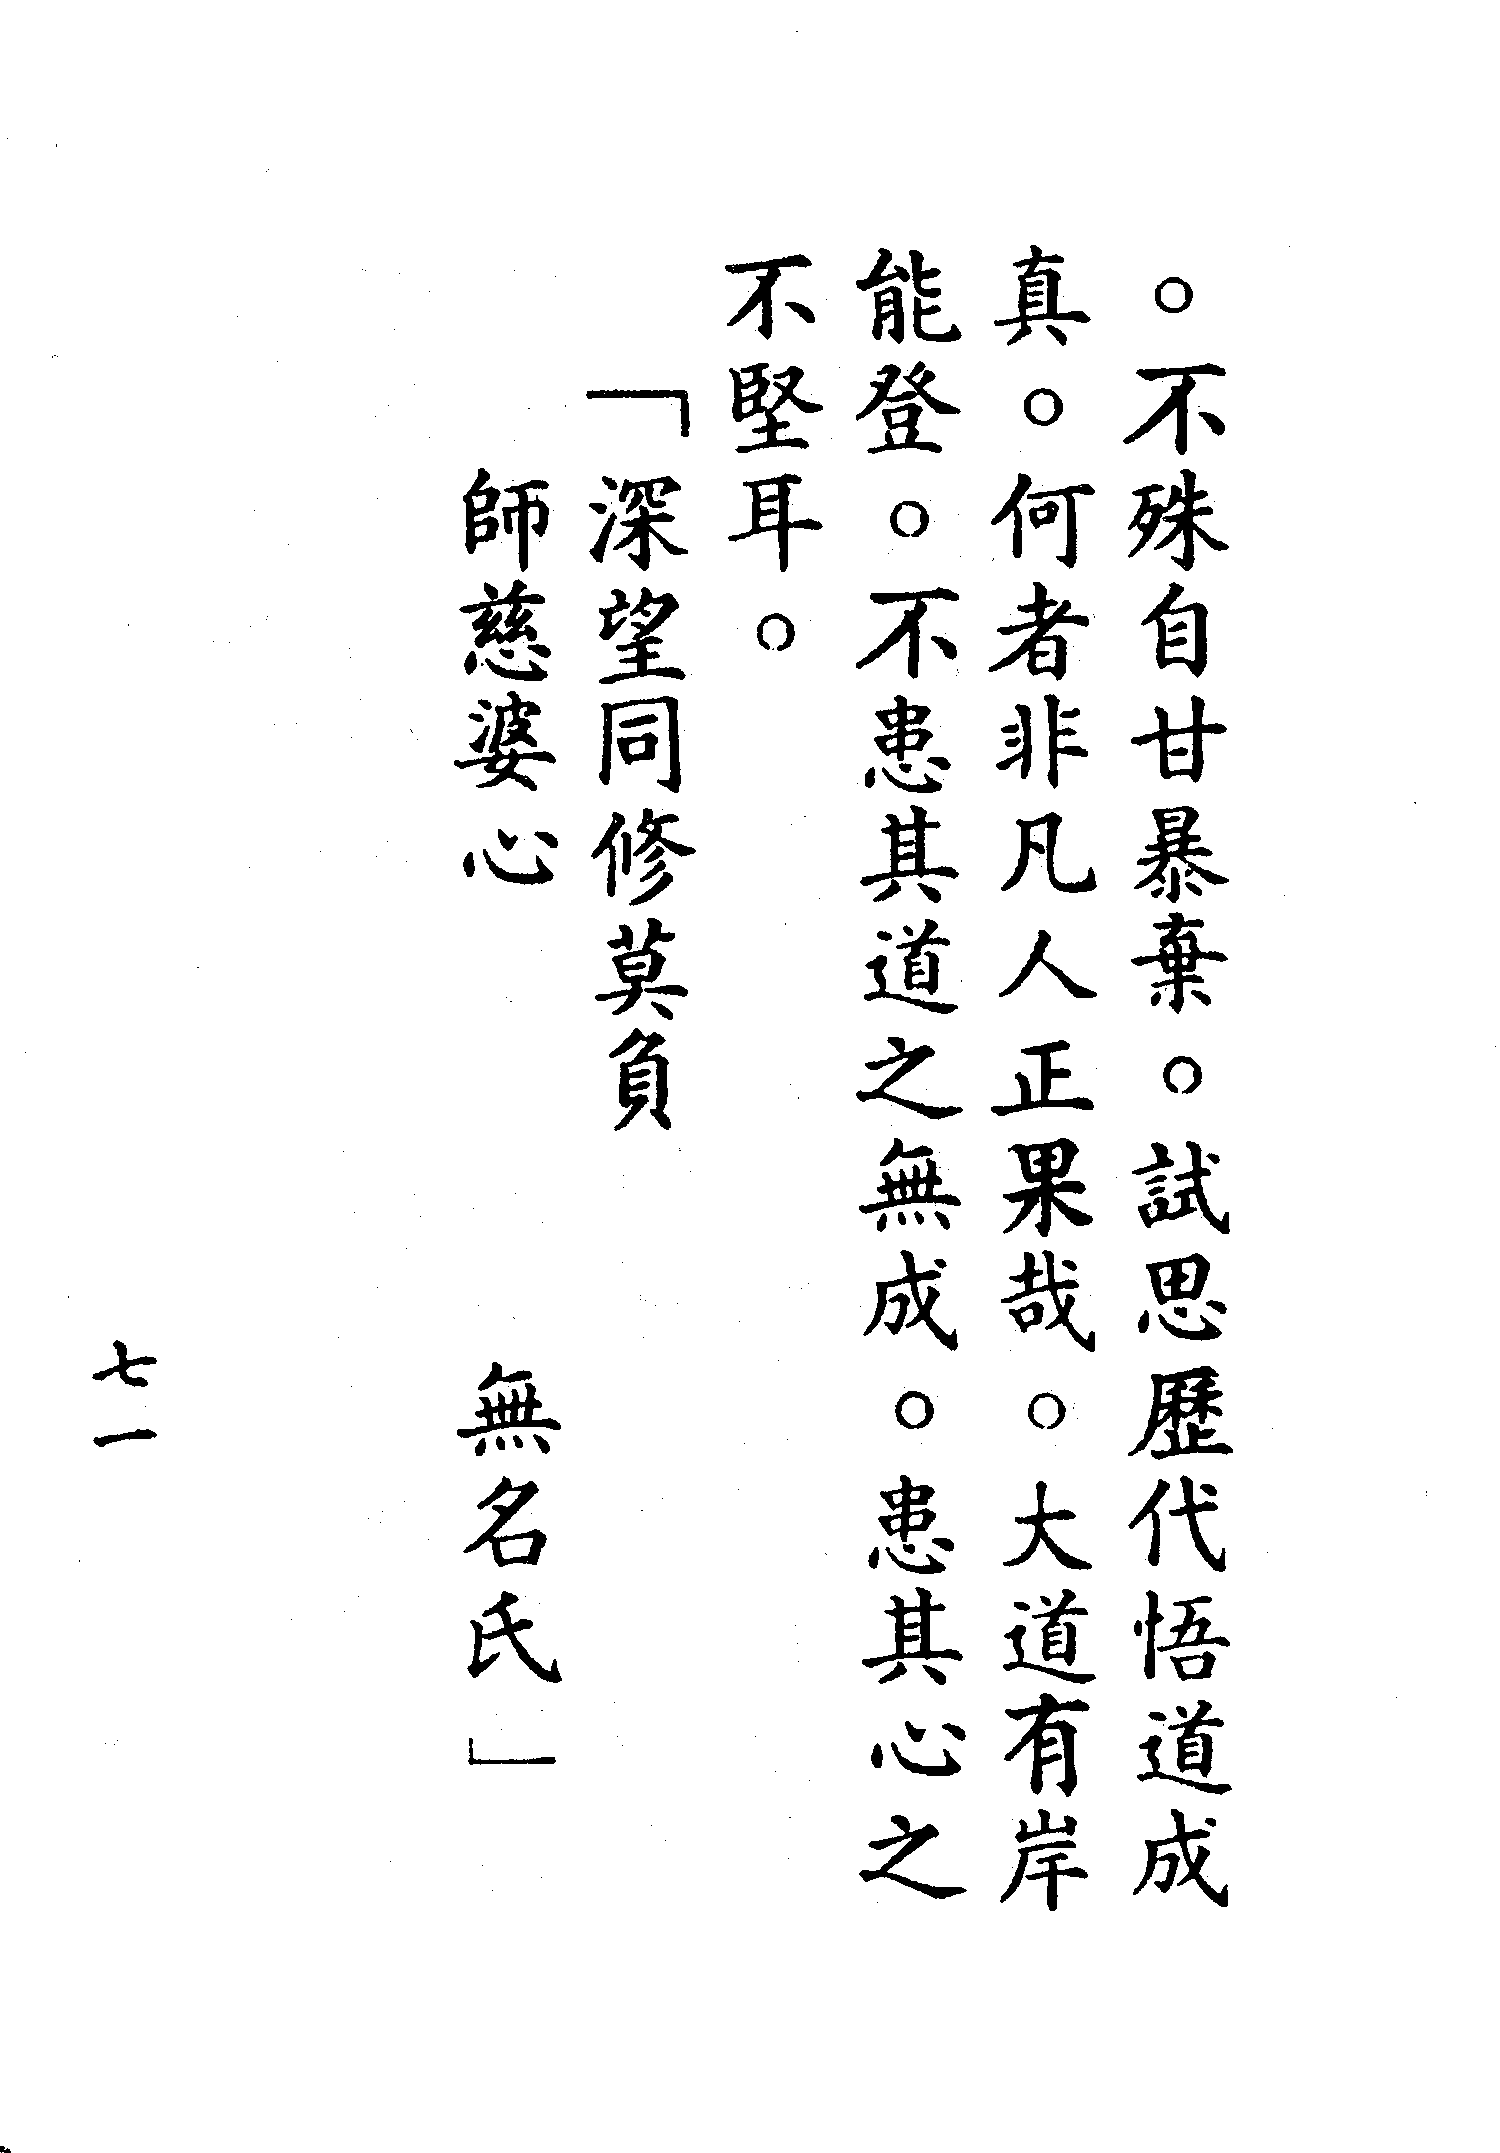 。不殊自甘暴棄。試思歷代悟道成
真。何者非凡人正果哉。大道有岸
能登。不患其道之無成。患其心之
不堅耳。
「深望同修莫負
師慈婆心　　　　無名氏」
七一